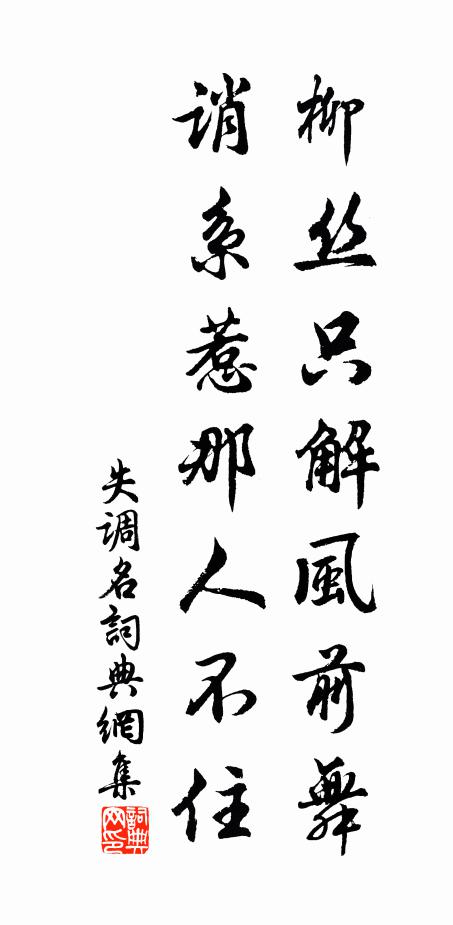 柳丝只解風前舞
誚系惹那人不住
失調名詞典網集
詞典网印